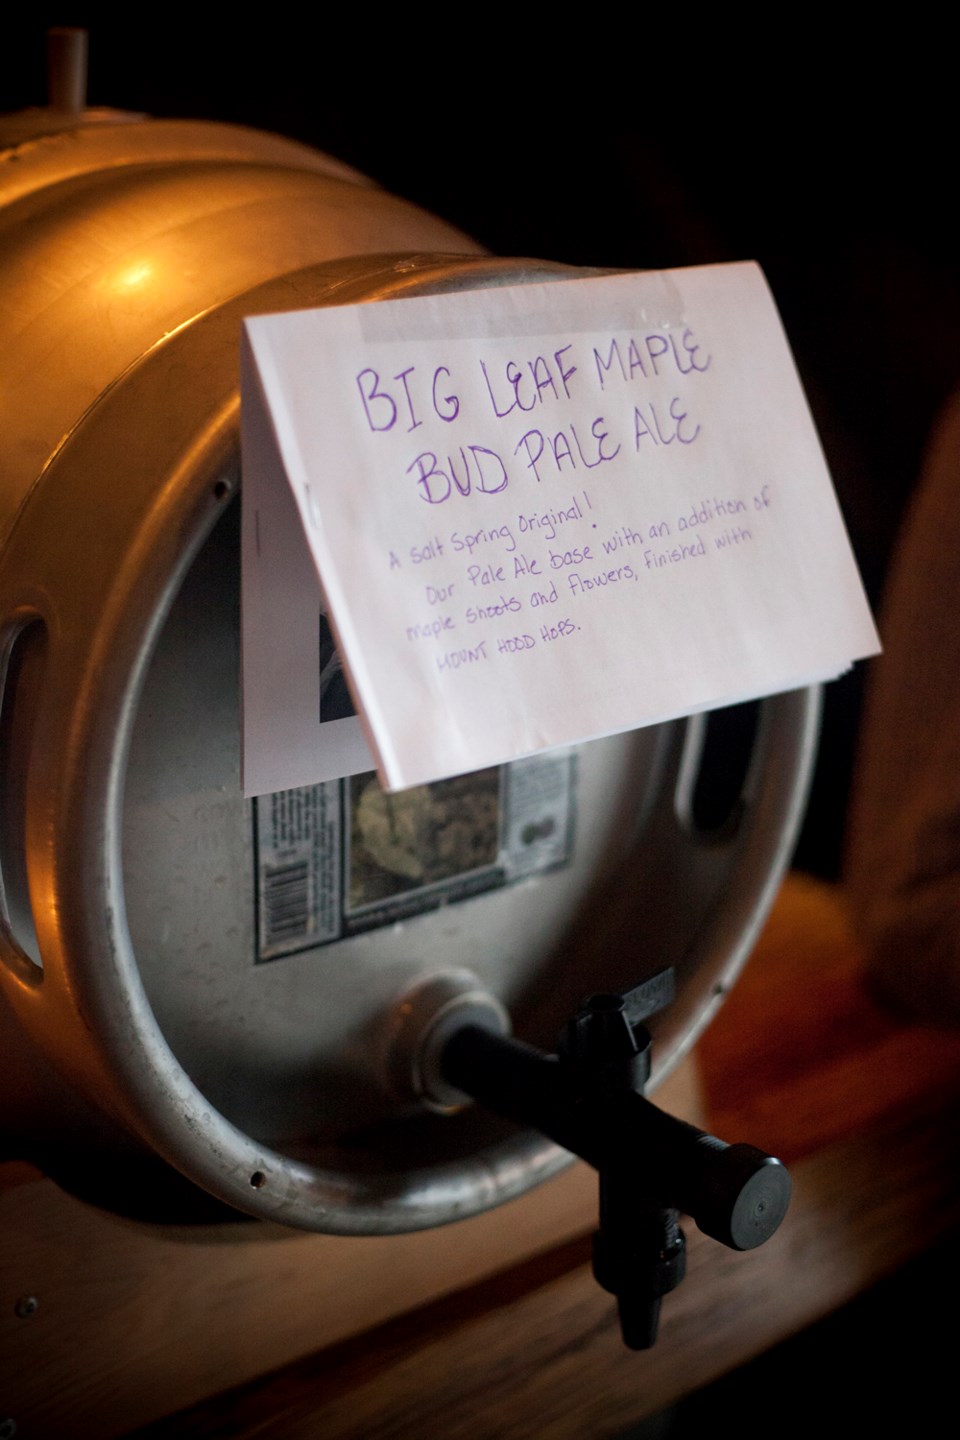 BIG LEAF MAPLE
BUD PALE ALE
A Salt Spring Original!
Our Pale Ale base with an addition of
maple shoots and flowers, finished with
MOUNT HOOD HOPS.